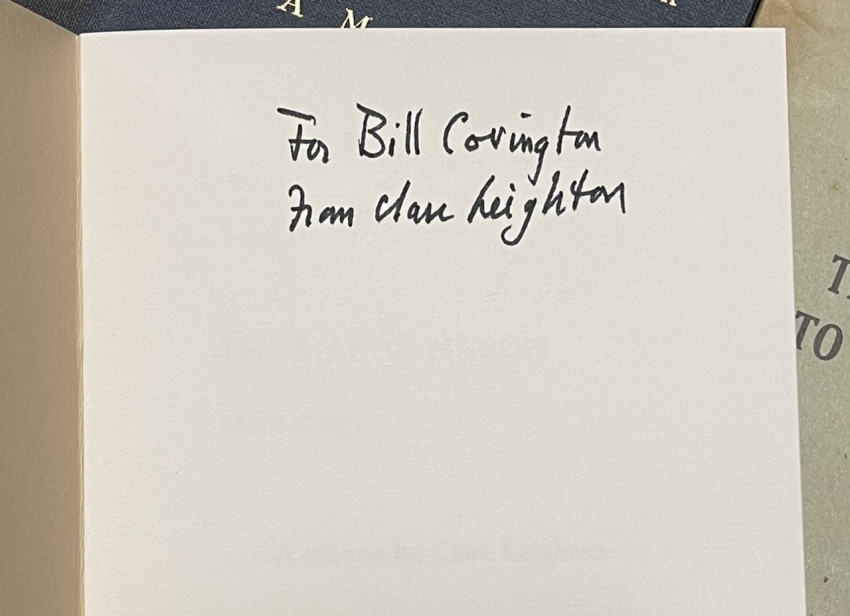 A M
For Bill Covington
From Clare Leighton
T
TO